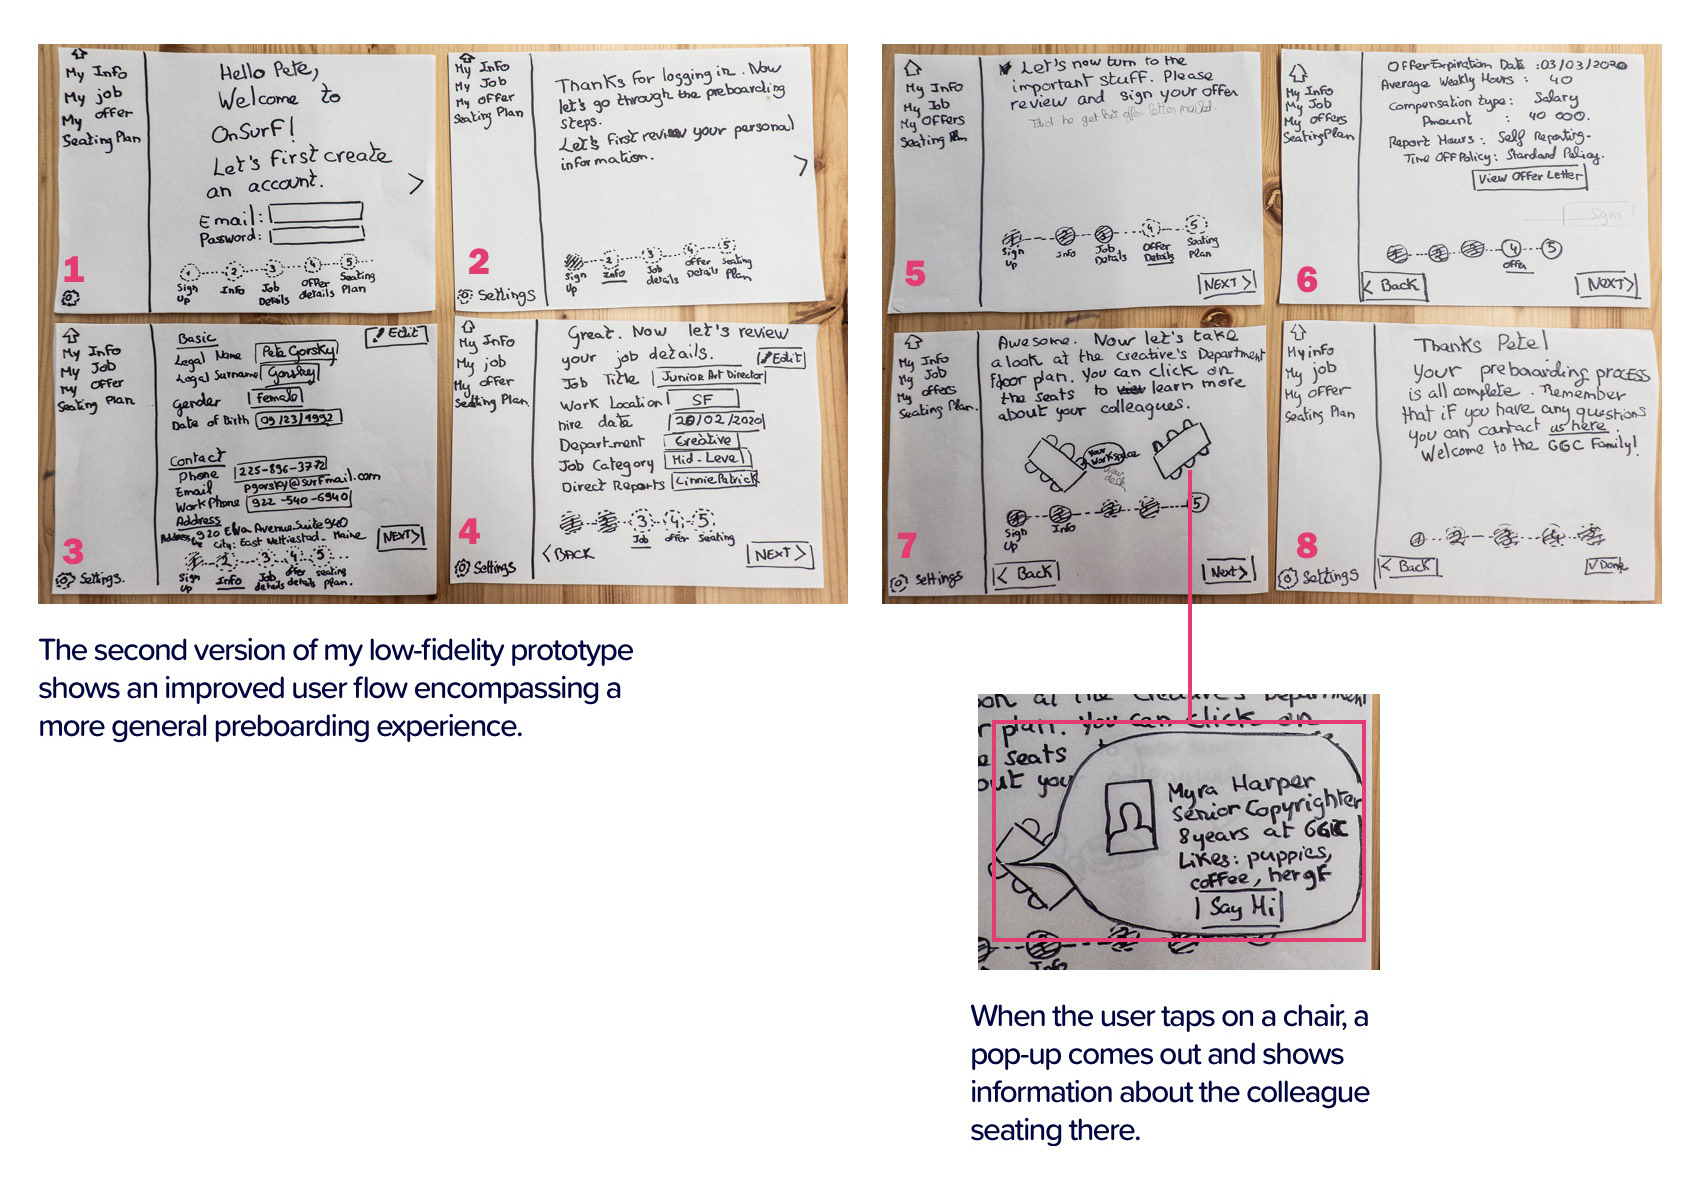 My Info
My job
My offer
Seating Plan
Hello Pete,
Welcome to
OnSurf!
Let's first create
an account.
>
Email:
Password:
1 2 3 4 5
Sign Up
Info
Job Details
Offer details
Seating Plan
1
My Info
My Job
My offer
Seating Plan
Thanks for logging in. Now
let's go through the preboarding
steps.
Let's first review your personal
information.
>
2 3 4 5
Sign Up
Info
Job Details
offer Details
Seating Plan
2
Settings
My Info
My Job
My offer
Seating Plan
Basic
Edit
Legal Name Pete Gorsky
Legal Surname Gorsky
Gender Female
Date of Birth 09/23/1992
Contact
Phone 225-896-3772
Email pgorsky@surfmail.com
Work Phone 922-540-6940
Address
920 Elva Avenue Suite 940
City: East Mettiestad Maine
NEXT>
Sign Up
Info
Job details
offer details
seating plan.
3
Settings.
My Info
My job
My offer
Seating Plan.
Great. Now let's review
your job details.
Edit
Job Title Junior Art Director
Work Location SF
hire date 20/02/2020
Department Creative
Job Category Mid-Level
Direct Reports Linnie Patrick
3 4 5
Job
offer
Seating
<BACK
NEXT>
4
Settings
My Info
My Job
My offers
Seating
Let's now turn to the
important stuff. Please
review and sign your offer
Sign Up
Info
Job Details
Offer Details
Seating Plan
4 5
NEXT>
5
My Info
My Job
My offers
Seating Plan
Offer Expiration Date : 03/03/2020
Average Weekly Hours : 40
Compensation type : Salary
Amount : 40 000.
Report Hours : Self Reporting-
Time Off Policy : Standard Policy.
View Offer Letter
Sign
4 5
offer
< Back
NEXT>
6
My Info
My Job
My offers
Seating Plan.
Awesome. Now let's take
a look at the Creative's Department
floor plan. You can click on
the seats to learn more
about your colleagues.
Your workspace
5
Sign Up
Info
< Back
Next>
7
Settings
My info
My job
My offer
Seating Plan
Thanks Pete!
Your preboarding process
is all complete. Remember
that if you have any questions
you can contact us here.
Welcome to the GGC Family!
< Back
Done
8
Settings
The second version of my low-fidelity prototype
shows an improved user flow encompassing a
more general preboarding experience.
look at the Creative's Department
plan. You can click on
seats
out you
Myra Harper
Senior Copyrighter
8 years at GGC
Likes: puppies,
coffee, her gf
Say Hi
Info
When the user taps on a chair, a
pop-up comes out and shows
information about the colleague
seating there.